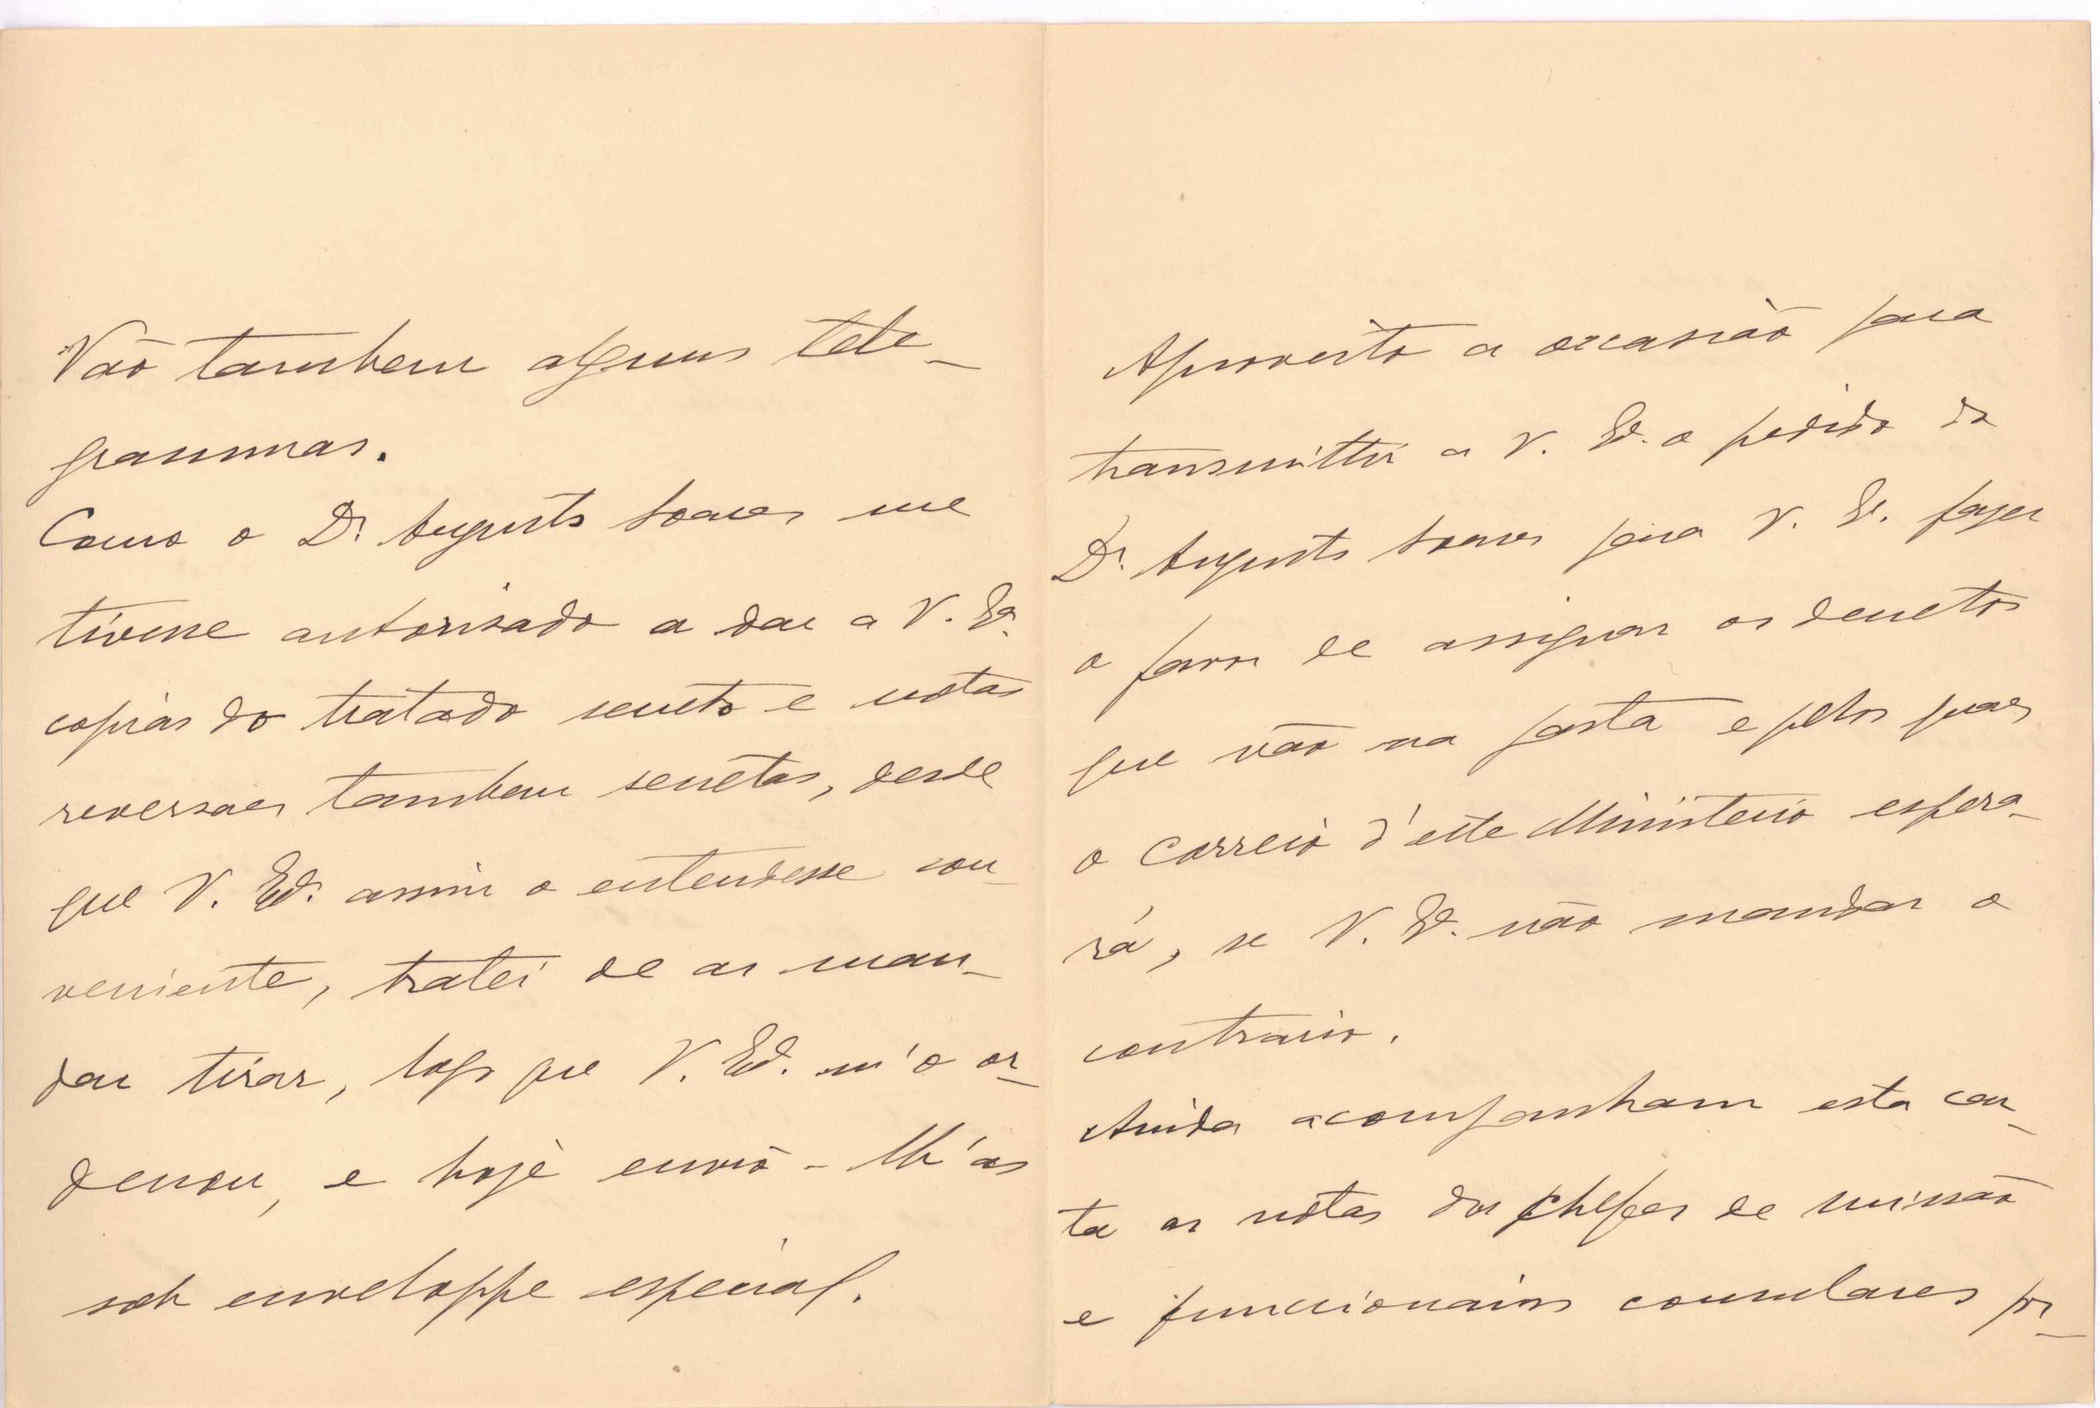 Vão tambem alguns tele-
grammas.
Como o Dr. Augusto Soares me
tivesse autorisado a dar a V. Exª.
copias do tratado secreto e notas
reversaes tambem secretas, desde
que V. Exª. assim o entendesse con-
veniente, tratei de as man-
dar tirar, logo que V. Exª. m'o or-
denou, e hoje envio-lh'as
sob enveloppe especial.
Aproveito a occasião para
transmittir a V. Exª. o pedido do
Dr. Augusto Soares para V. Exª. fazer
o favor de assignar os decretos
que vão na pasta e pelos quaes
o correio d'este Ministerio espera-
rá, se V. Exª. não mandar o
contrario.
Ainda acompanham esta car-
ta as notas dos chefes de missão
e funccionarios consulares por-